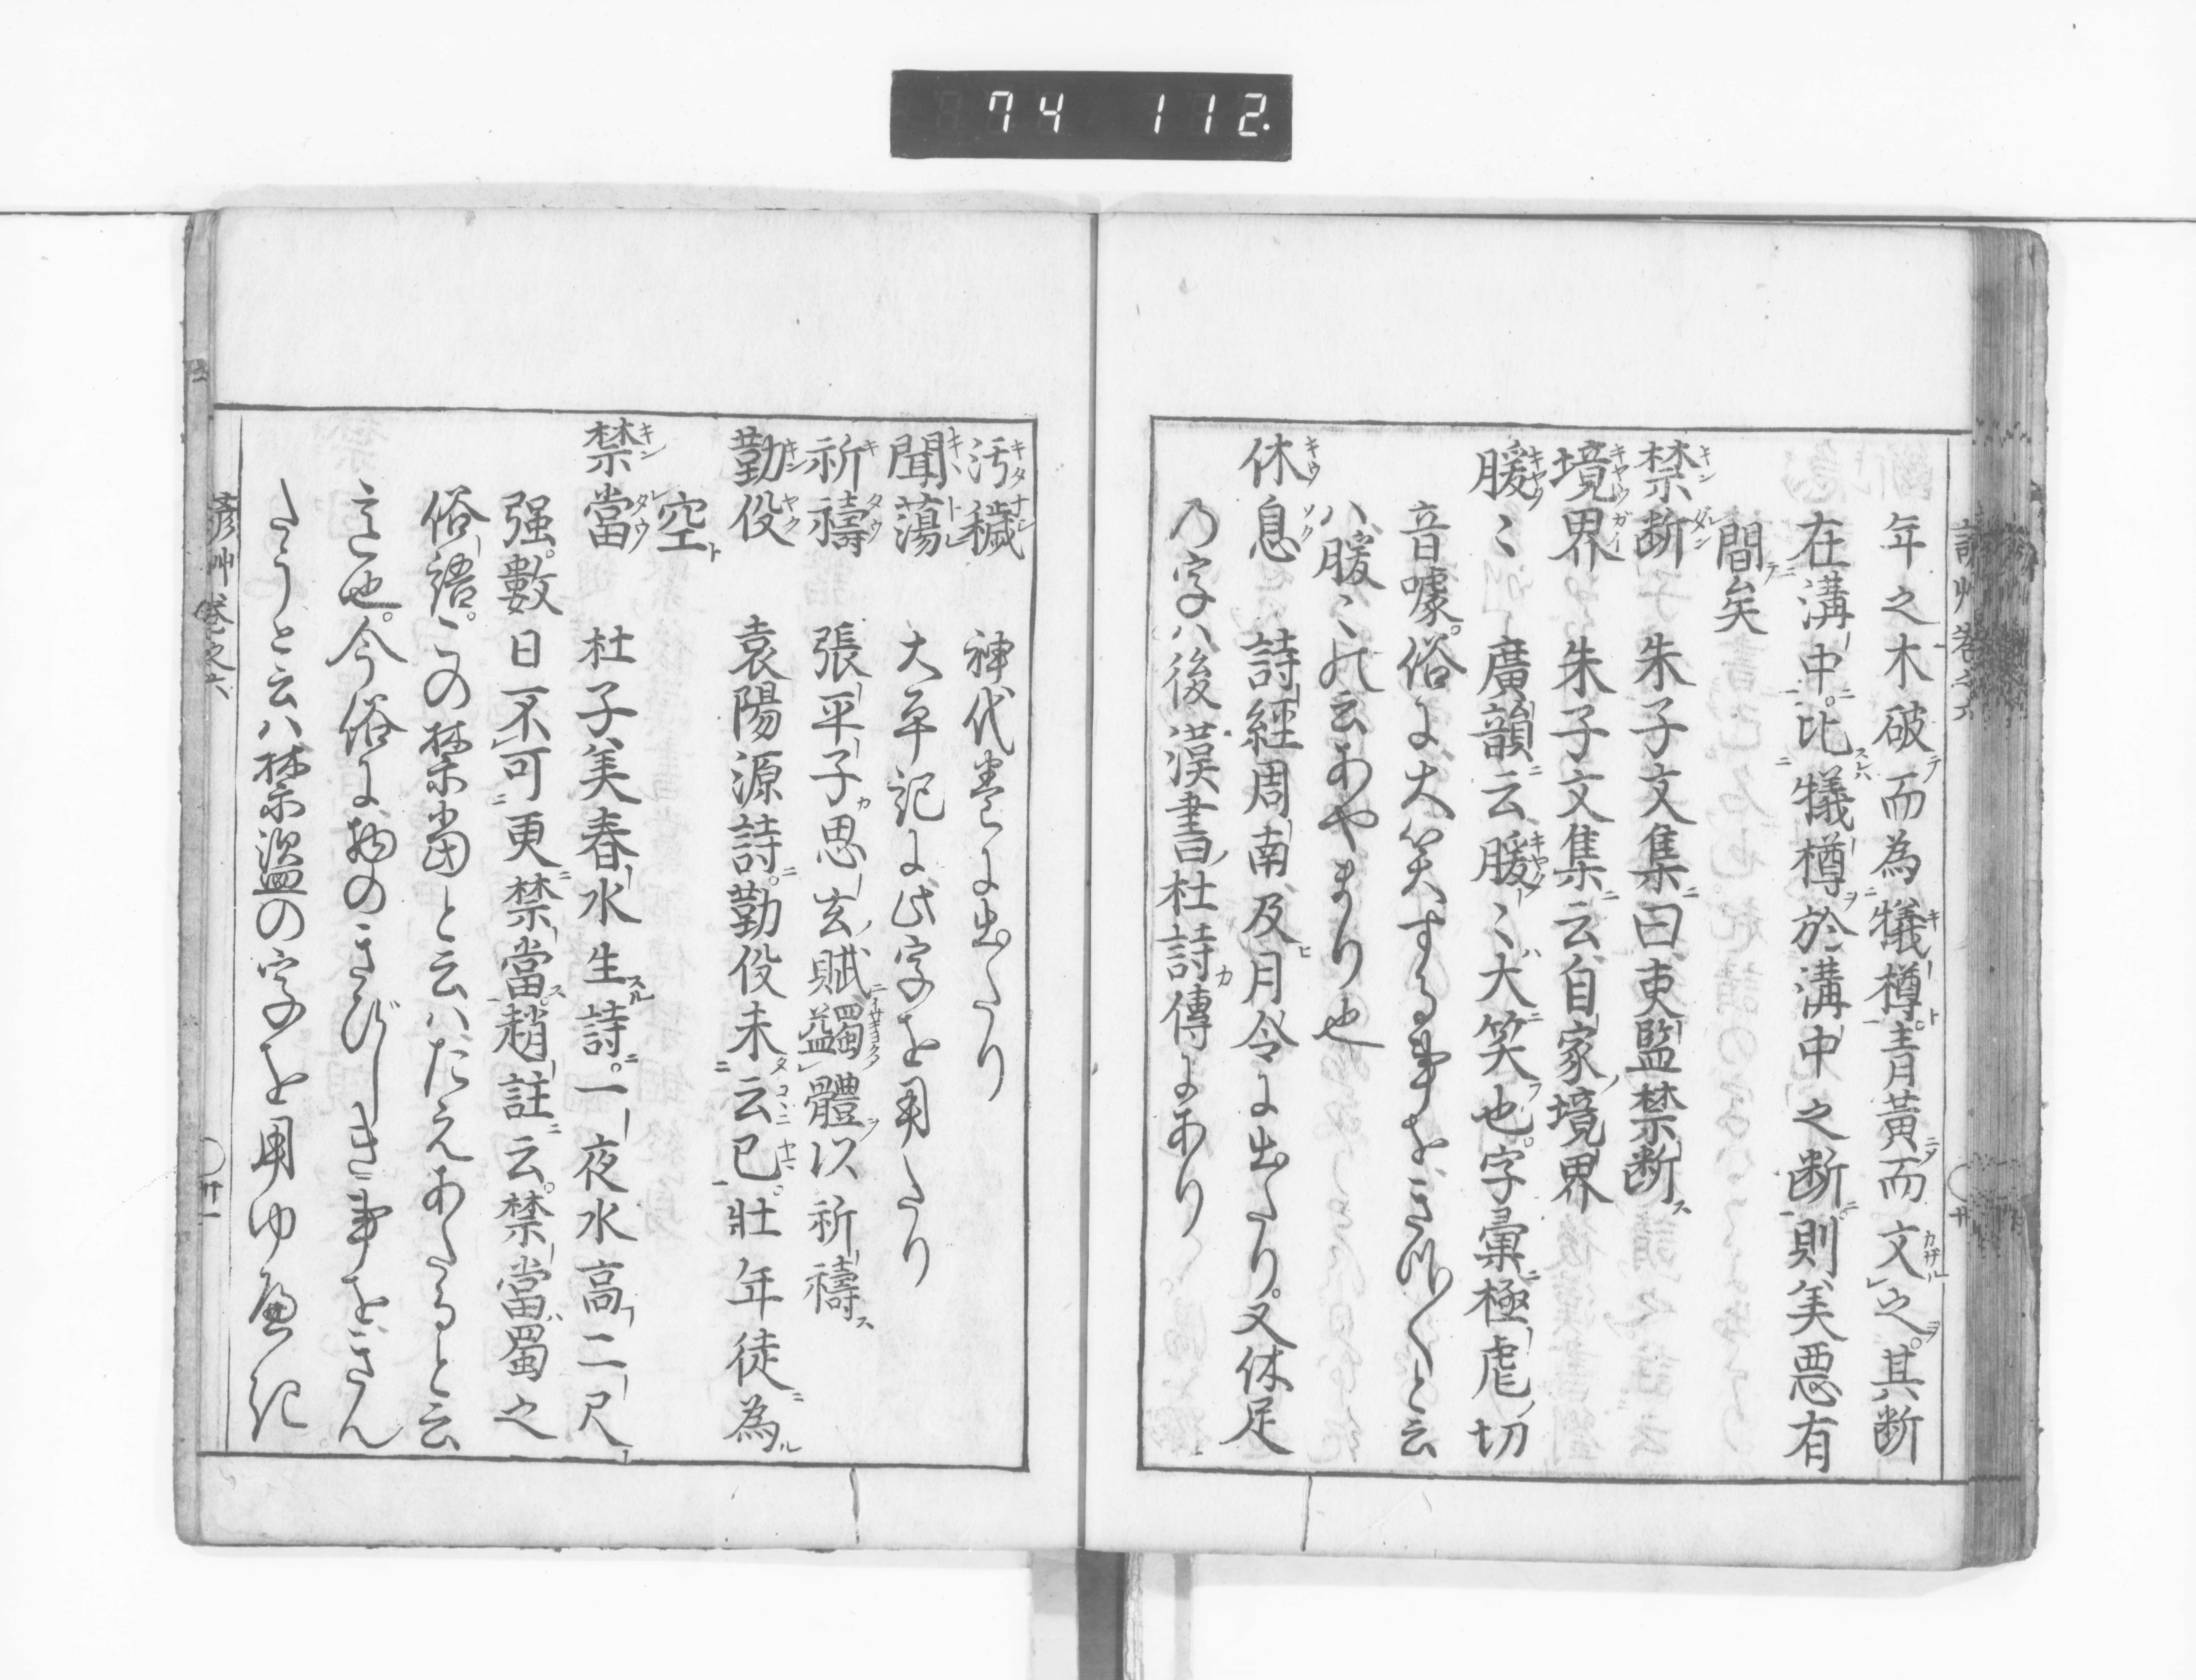 74 112.
年之木破而為犠樽青黃而文之其断
在溝中比犠樽於溝中之断則美悪有
間矣
禁断 朱子文集曰吏監禁断
境界 朱子文集云自家境界
䐹〻 廣韻云䐹〻大笑也字彙極虐切
音噱俗に大笑する事をきやく〳〵と云
ハ䐹〻と云あやまり也
休息 詩經周南及月令に出たり又休足
乃字ハ後漢書杜詩傳にあり
汚穢 神代巻に出たり
聞蕩 大平記に此字を用たり
祈禱 張平子思玄賦蠲體以祈禱
勤役 袁陽源詩勤役未云已壯年徒為
空
禁當 杜子美春水生詩一夜水高二尺
强數日不可更禁當趙註云禁當蜀之
俗語この禁當と云ハたえあたると云
こと也今俗に物のきびしき事をきん
たうと云ハ禁盗の字を用ゆべき
諺艸巻之六
廿一